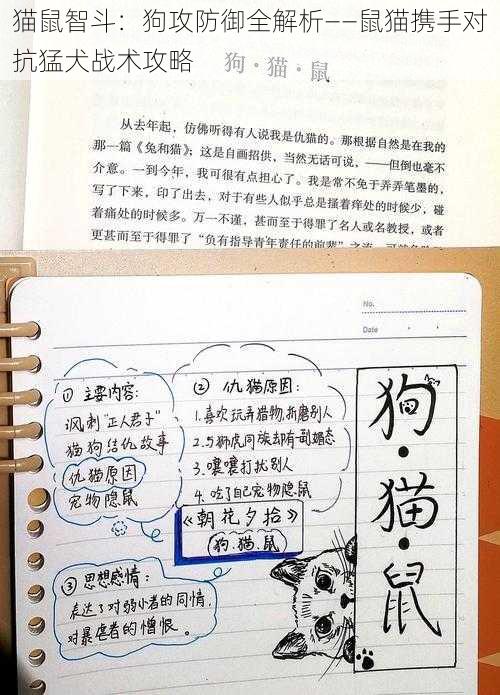 猫鼠智斗：狗攻防御全解析——鼠猫携手对
抗猛犬战术攻略
狗·猫·鼠
从去年起，仿佛听得有人说我是仇猫的。那根据自然是在我的
那一篇《兔和猫》；这是自画招供，当然无话可说，——但倒也毫不
介意。一到今年，我可很有点担心了。我是常不免于弄弄笔墨的，
写了下来，印了出去，对于有些人似乎总是搔着痒处的时候少，碰
着痛处的时候多。万一不谨，甚而至于得罪了名人或名教授，或者
更甚而至于得罪了“负有指导青年责任的前辈”之流
No.
Date
① 主要内容：
讽刺“正人君子”
猫狗结仇故事
仇猫原因
宠物隐鼠
② 仇猫原因：
1.喜欢玩弄猎物,折磨别人
2.与狮虎同族却有一副媚态
3.嚷嚷打扰别人
4.吃了自己宠物隐鼠
《朝花夕拾》
狗.猫.鼠
③ 思想感情：
表达了对弱小者的同情,
对暴虐者的憎恨。
狗·猫·鼠